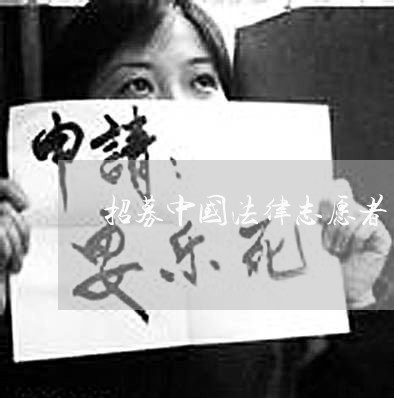 申請：
招募中國法律志愿者
安乐死